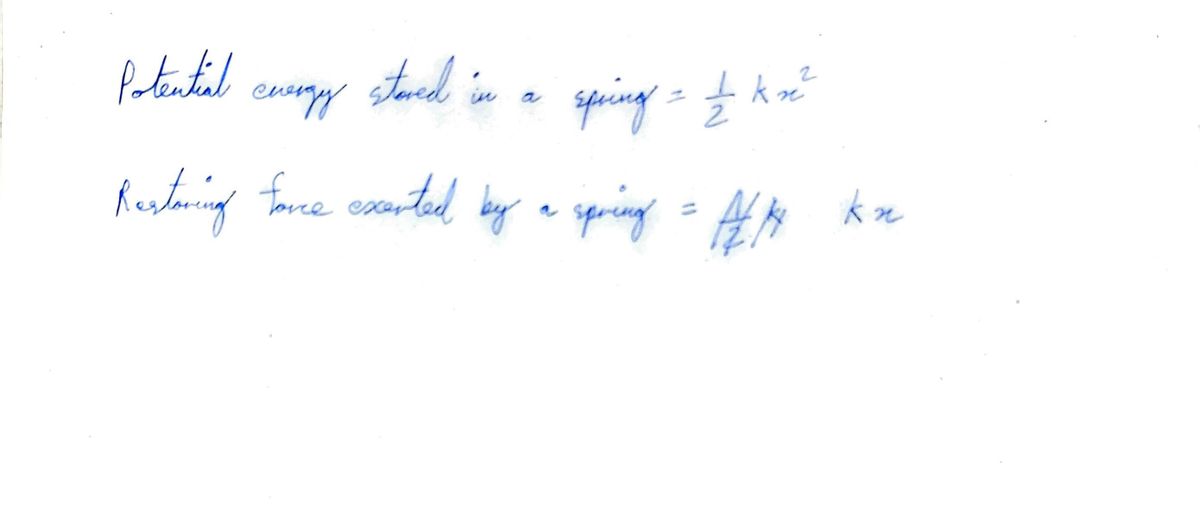 Potential energy stored in a spring = 1/2 kx²
Restoring force exerted by a spring = kx